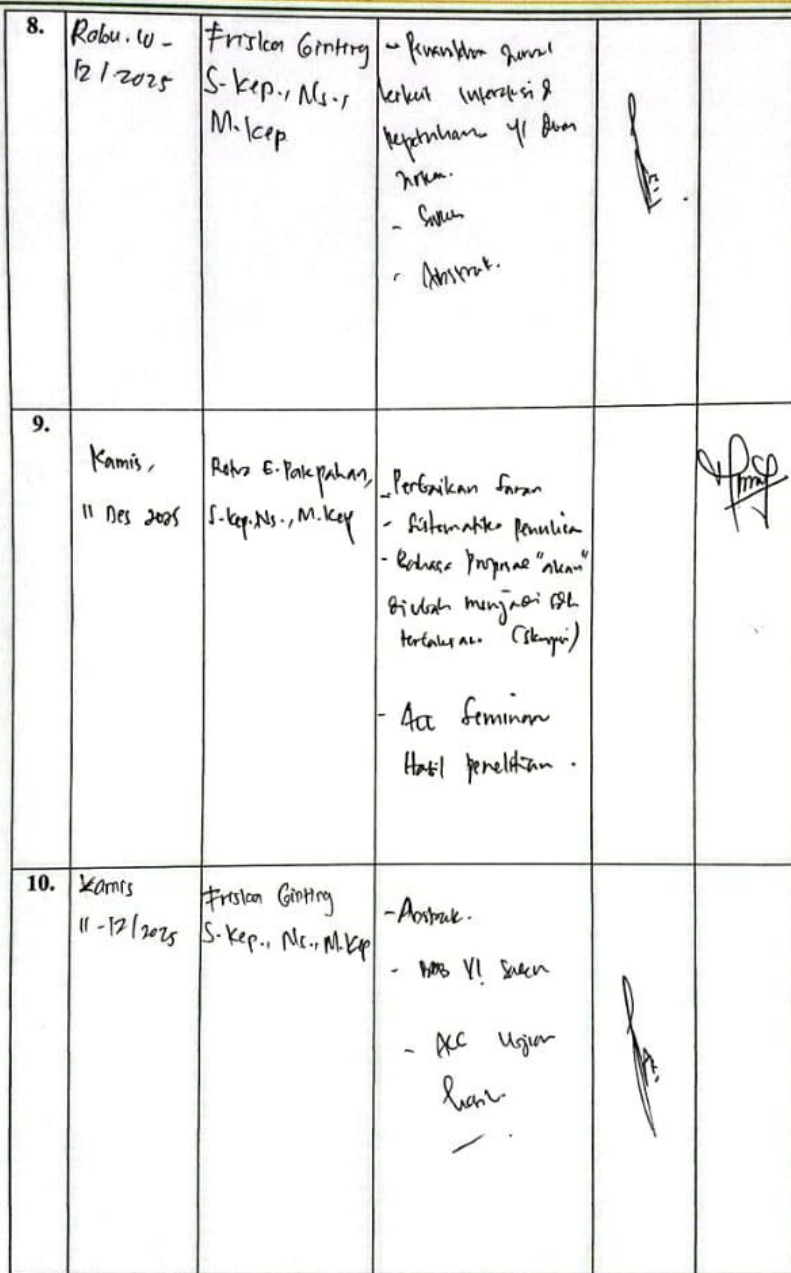 8.
Rabu. 10 -
12 / 2025
Friska Ginting
S.Kep., Ns.,
M.Kep
-
terkait Interaksi &
kepatuhan
- Saran
- Abstrak.
9.
Kamis,
11 Des 2025
E. Pakpahan,
S.Kep.Ns., M.Kep
- Perbaikan Saran
- Sistematika Penulisan
- Bahasa Proposal "akan"
diubah menjadi
(Skripsi)
- Acc Seminar
Hasil penelitian.
10.
Kamis
11 - 12/2025
Friska Ginting
S.Kep., Ns., M.Kep
- Abstrak.
- BAB VI Saran
- ACC Ujian
hasil